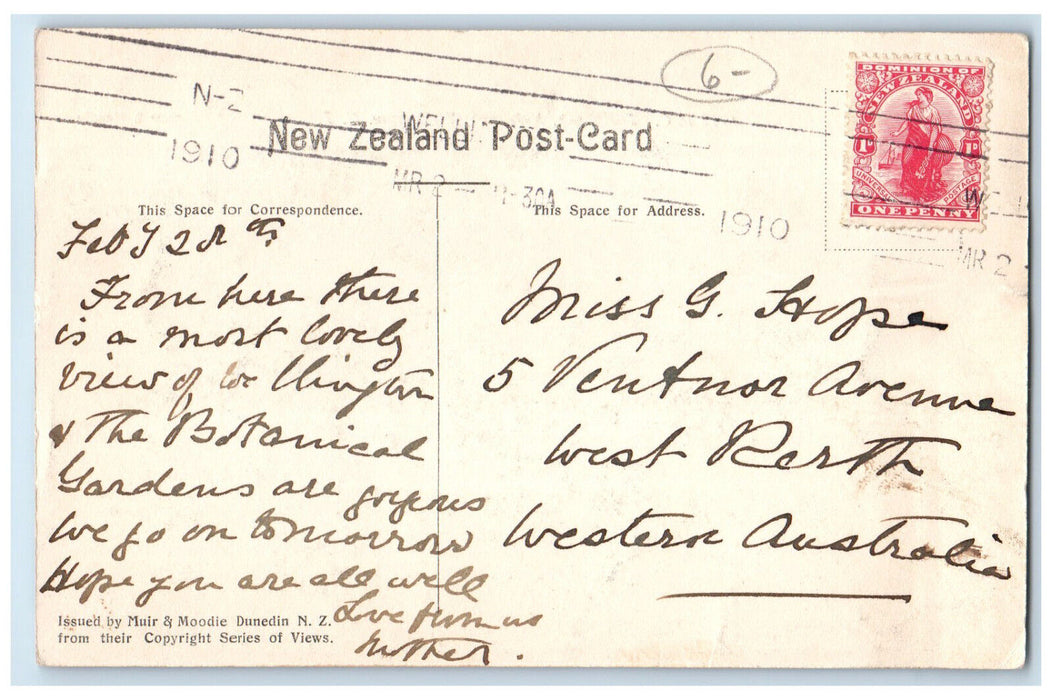 6-
N-Z
WELLI
1910
MR 2 - 4-30A
1910
W
MR 2
DOMINION OF
NEW ZEALAND
1D 1D
UNIVERSAL POSTAGE
ONE PENNY
New Zealand Post-Card
This Space for Correspondence.
This Space for Address.
28th
From here there
is a most lovely
view of Wellington
& the Botanical
Gardens are gorgeous
we go on tomorrow
Hope you are all well
Love from us
Mother.
Miss G. Hope
5 Ventnor Avenue
West Perth
Western Australia
Issued by Muir & Moodie Dunedin N. Z.
from their Copyright Series of Views.